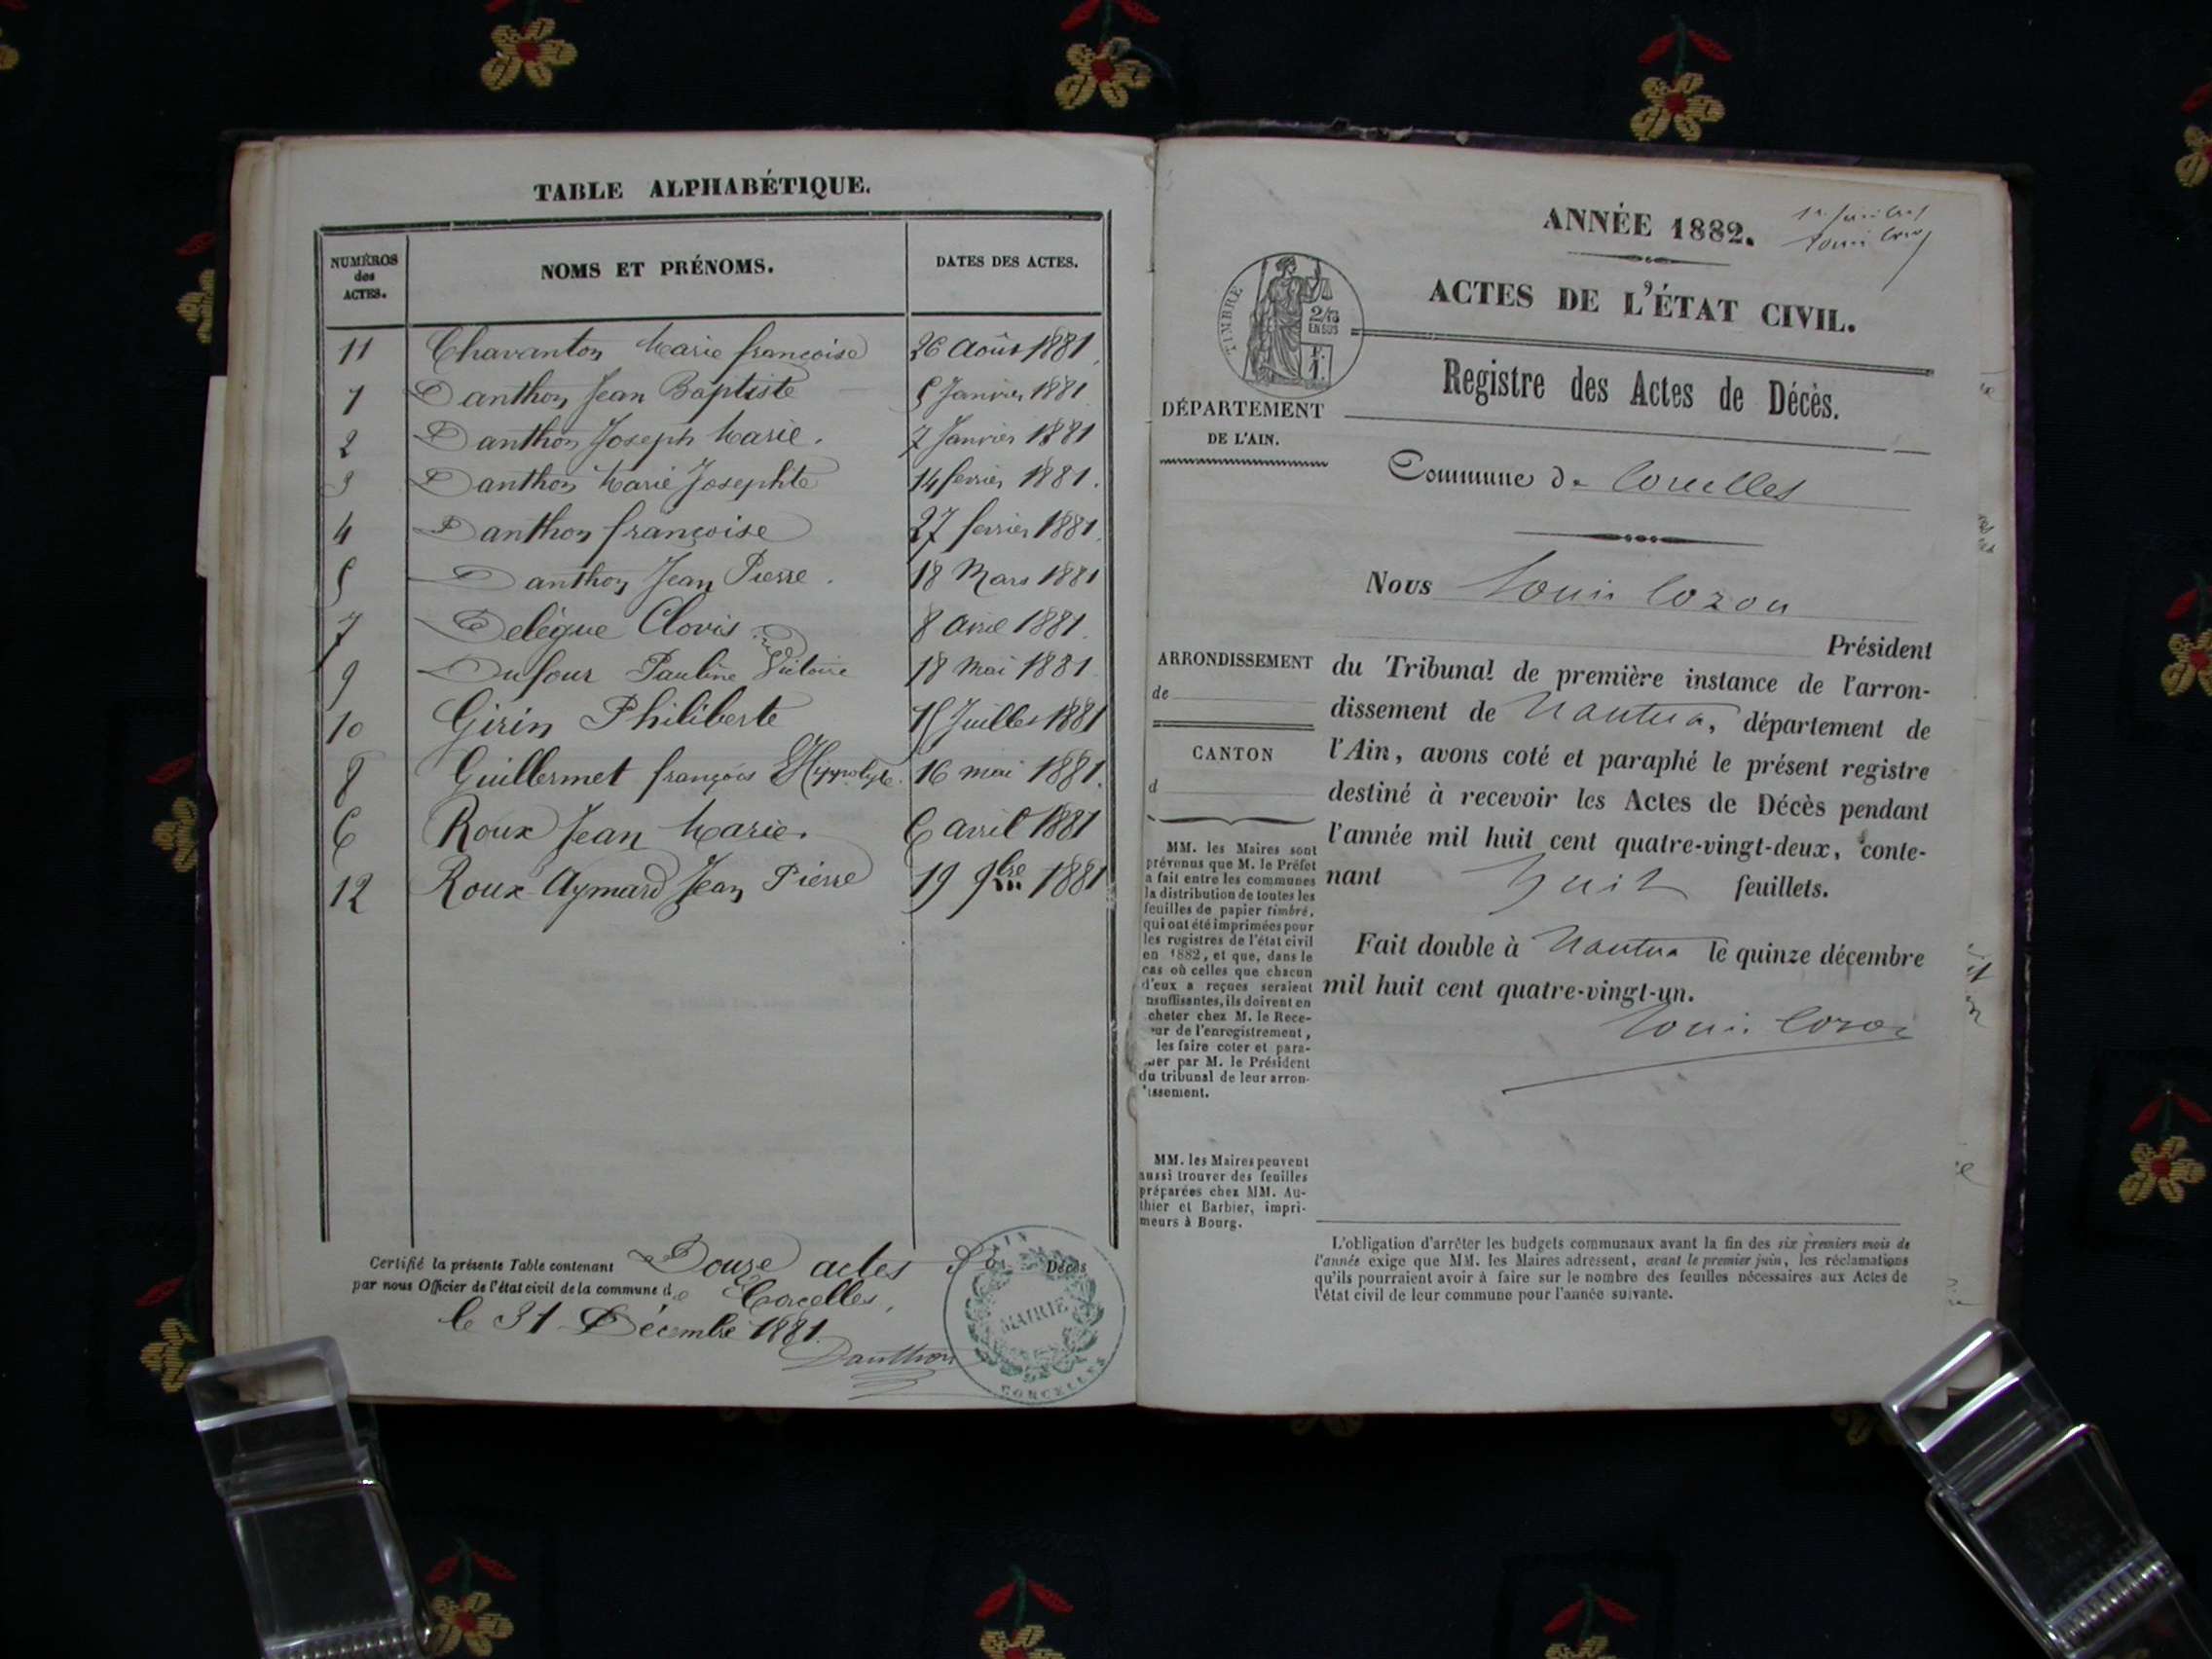 TABLE ALPHABÉTIQUE.
NUMÉROS des ACTES.
NOMS ET PRÉNOMS.
DATES DES ACTES.
11 Chavanton Marie françoise 26 Août 1881.
1 Danthon Jean Baptiste 5 Janvier 1881
2 Danthon Joseph Marie. 7 Janvier 1881
3 Danthon Marie Josephte 14 fevrier 1881.
4 Danthon françoise 27 fevrier 1881.
5 Danthon Jean Pierre. 18 Mars 1881
7 Delégue Clovis 8 avril 1881.
9 Dufour Pauline Victoire 18 Mai 1881
10 Girin Philiberte 15 Juillet 1881
8 Guillermet françois Hyppolyte. 16 mai 1881.
6 Roux Jean Marie. 6 avril 1881
12 Roux Aymard Jean Pierre 19 9bre 1881
Certifié la présente Table contenant Douze actes de Décès
par nous Officier de l'état civil de la commune de Corcelles,
le 31 Décembre 1881.
Danthon
AIN
MAIRIE
CORCELLES
ANNÉE 1882.
ACTES DE L'ÉTAT CIVIL.
TIMBRE
2/10
EN SUS
F.
1.
Registre des Actes de Décès.
DÉPARTEMENT
DE L'AIN.
Commune de Corcelles
Nous Louis Cozon
Président
du Tribunal de première instance de l'arron-
dissement de Nantua, département de
l'Ain, avons coté et paraphé le présent registre
destiné à recevoir les Actes de Décès pendant
l'année mil huit cent quatre-vingt-deux, conte-
nant huit feuillets.
Fait double à Nantua le quinze décembre
mil huit cent quatre-vingt-un.
Louis Cozon
ARRONDISSEMENT
de
CANTON
d
MM. les Maires sont
prévenus que M. le Préfet
a fait entre les communes
la distribution de toutes les
feuilles de papier timbré,
qui ont été imprimées pour
les registres de l'état civil
en 1882, et que, dans le
cas où celles que chacun
d'eux a reçues seraient
nsuffisantes, ils doivent en
cheter chez M. le Rece-
eur de l'enregistrement,
les faire coter et para-
her par M. le Président
du tribunal de leur arron-
issement.
MM. les Maires peuvent
aussi trouver des feuilles
préparées chez MM. Au-
thier et Barbier, impri-
meurs à Bourg.
L'obligation d'arrêter les budgets communaux avant la fin des six premiers mois de
l'année exige que MM. les Maires adressent, avant le premier juin, les réclamations
qu'ils pourraient avoir à faire sur le nombre des feuilles nécessaires aux Actes de
l'état civil de leur commune pour l'année suivante.